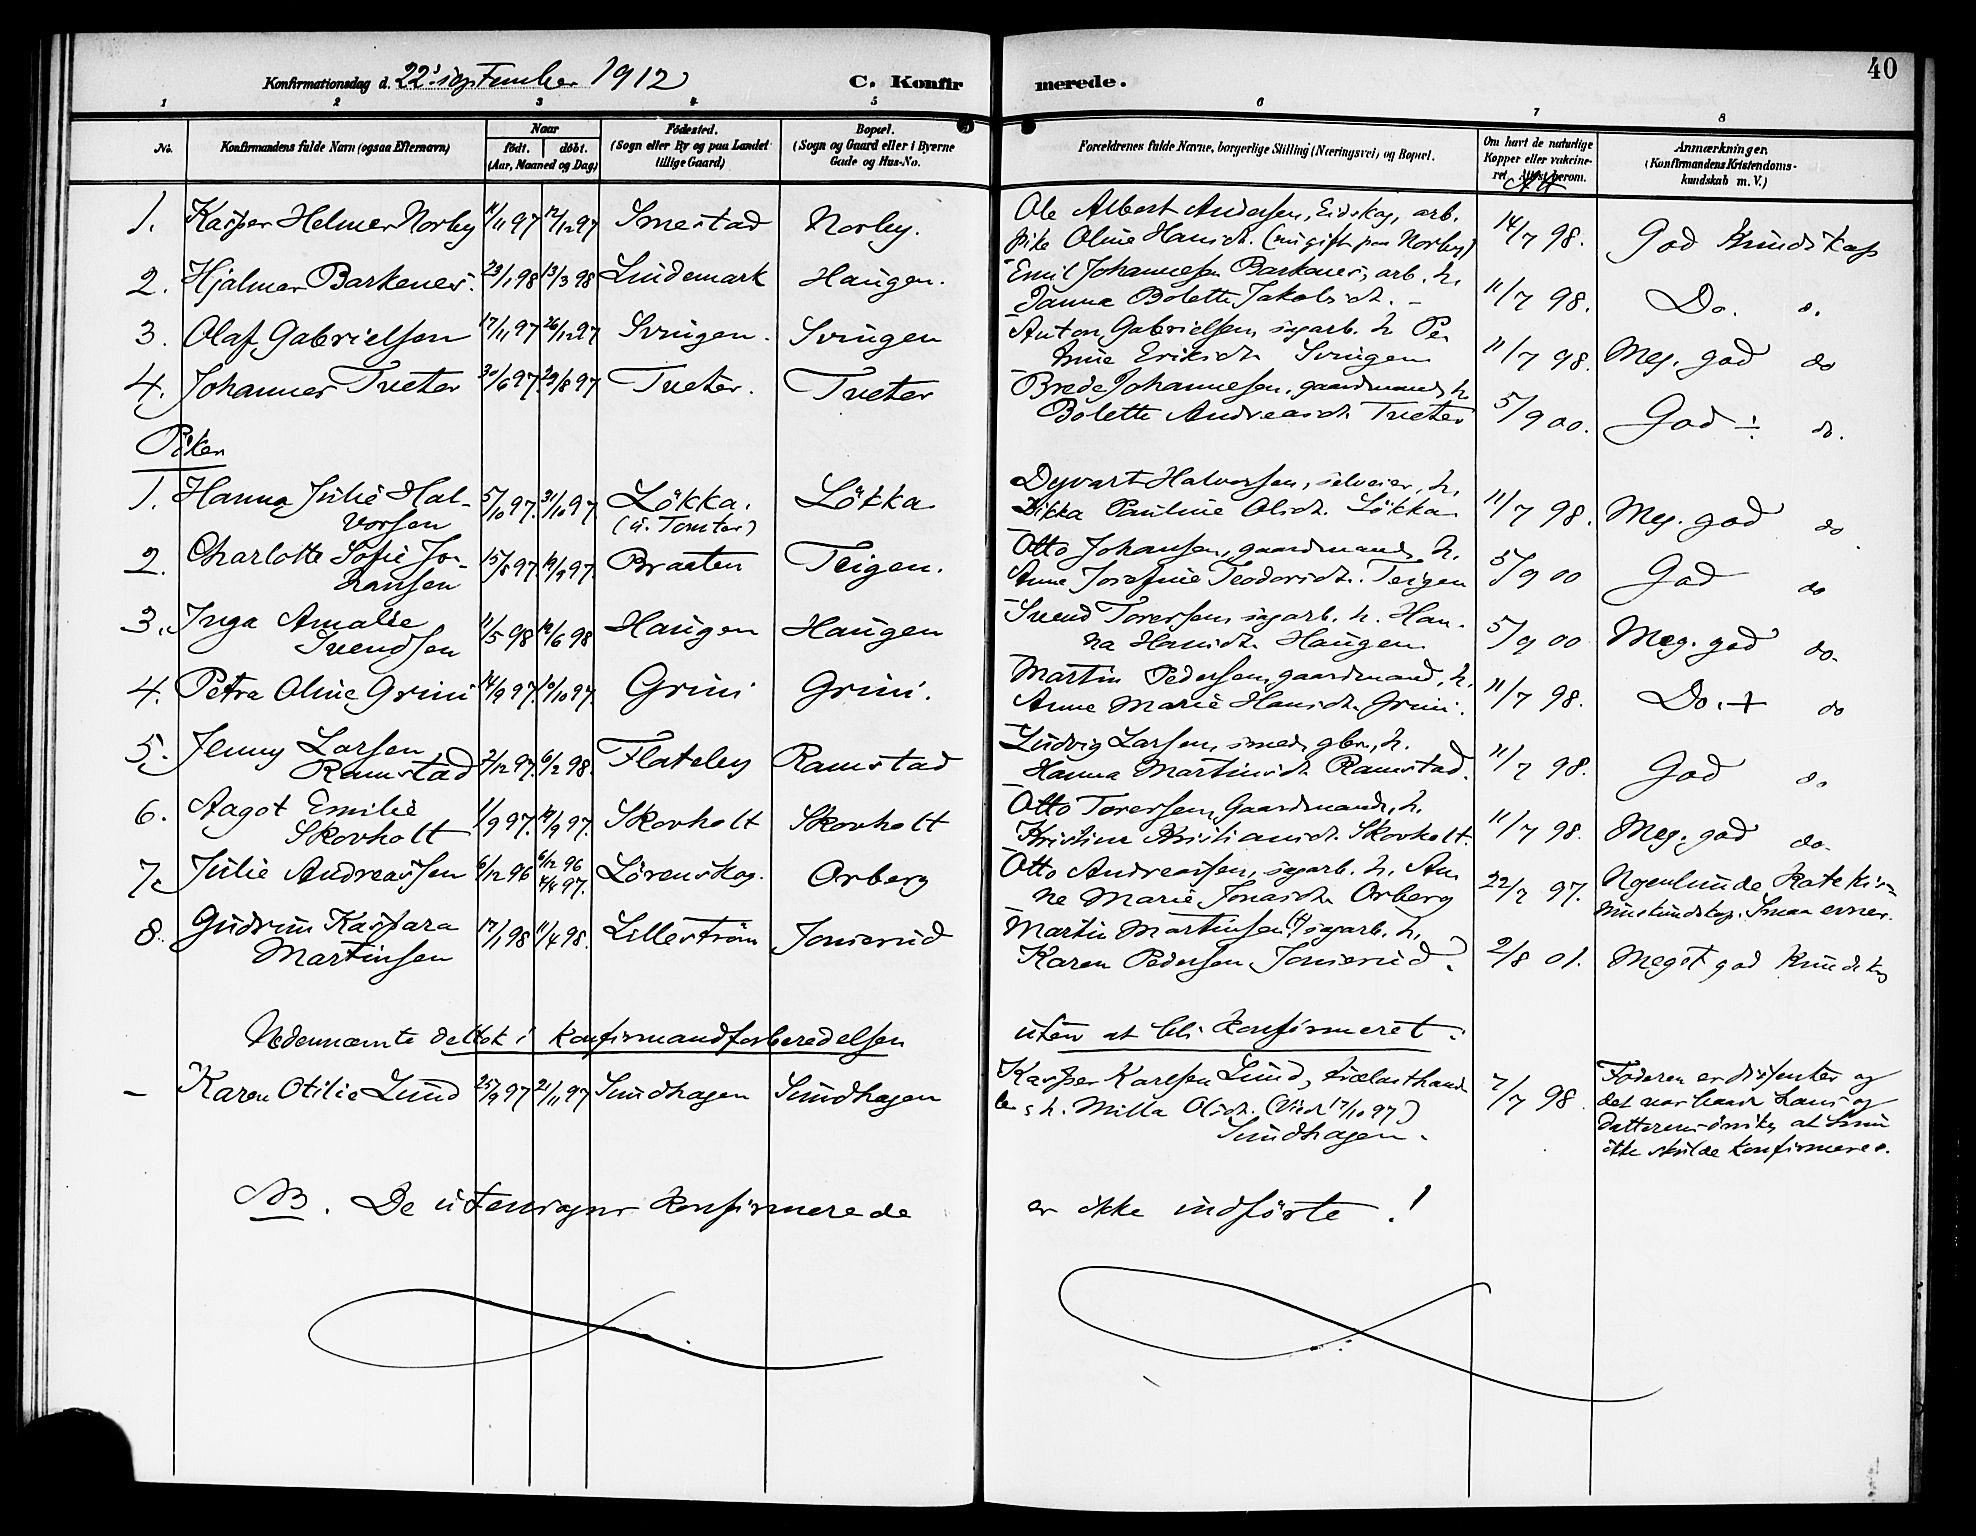 40
Konfirmationsdag d. 22' september 1912
C. Konfirmerede.
1 2 3 4 5 6 7 8
No.
Konfirmandens fulde Navn (ogsaa Efternavn)
Naar
født. døbt.
(Aar, Maaned og Dag)
Fødested.
(Sogn eller By og paa Landet
tillige Gaard)
Bopæl.
(Sogn og Gaard eller i Byerne
Gade og Hus-No.
Forældrenes fulde Navne, borgerlige Stilling (Næringsvei) og Bopæl.
Om havt de naturlige
Kopper eller vakcine-
ret. Attest herom.
Anmærkninger.
(Konfirmandens Kristendoms-
kundskab m. V.)
1. Kasper Helmer Norby 11/11 97 12/12 97 Smestad Norby.
Ole Albert Andersen, Eidskog, arb.
pike Oline Hansdt. (nu gift paa Norby) 14/7 98. God kundskap
2. Hjalmar Barkenes. 23/1 98 13/3 98 Lindemark Haugen.
Emil Johannesen Barkenes, arb. h.
Janna Bolette Jakobsdt. - 11/7 98. Do. do.
3. Olaf Gabrielsen 17/11 97 26/12 97 Svingen. Svingen
Anton Gabrielsen, sagarb. h. Pe-
Anne Eriksdt. Svingen 11/7 98. Meg. god do
4. Johannes Tveter 30/6 97. 29/8 97 Tveter. Tveter
Brede Johannesen, gaardmand, h.
Bolette Andreasdt. Tveter 5/9 00. God ÷ do.
Piker
1. Hanna Julie Hal-
vorsen 5/10 97. 31/10 97 Løkka. Løkka
(u. Tomter)
Dyvart Halvorsen, selveier, h.
Rikka Pauline Olsdt. Løkka 11/7 98. Meg. god do
2. Charlotte Sofie Jo-
hansen 15/8 97. 19/9 97. Braaten Teigen.
Otto Johansen, gaardmand, h.
Anne Josefine Teodorsdt. Teigen 5/9 00 God do
3. Inga Amalie
Svendsen 11/5 98 19/6 98 Haugen Haugen
Svend Toresen, sagarb. h. Han-
na Hansdt. Haugen 5/9 00 Meg. god do.
4. Petra Oline Grini 14/9 97. 10/10 97. Grini Grini.
Martin Pedersen, gaardmand, h.
Anne Marie Hansdt. Grini. 11/7 98. Do. + do
5. Jenny Larsen
Ramstad 2/12 97. 6/2 98. Flateby Ramstad
Ludvig Larsen, smed, gbr., h.
Hanna Martinsdt. Ramstad. 11/7 98. God do
6. Aagot Emilie
Skovholt 1/9 97. 19/9 97. Skovholt Skovholt
Otto Toresen, Gaardmand, h.
Kristine Kristiansdt. Skovholt. 11/7 98. Meg. god do.
7. Julie Andreassen 6/12 96 6/12 96
4/4 97. Lørenskog. Orberg
Otto Andreassen, sagarb. h. An-
ne Marie Jonasdt. Orberg 22/7 97. Nogenlunde Katekis-
muskundskap. Smaa evner.
8. Gudrun Kaspara
Martinsen 17/1 98 11/4 98. Lillestrøm Jonsrud
Martin Martinsen (†) sagarb. h.
Karen Pedersen, Jonsrud. 2/8 01. Meget god kundskap
Nedennævnte deltok i konfirmandforberedelsen uten at bli konfirmeret:
- Karen Otilie Lund 25/9 97 21/11 97 Sundhagen Sundhagen
Kasper Karlsen Lund, trælasthand-
ler, h. Milla Olsdt. (Viet 17/10 97)
Sundhagen. 7/7 98.
Faderen er dissenter og
det var baade hans og
datterens ønske, at hun
ikke skulde konfirmeres.
NB. De utensogns konfirmerede er ikke indførte!